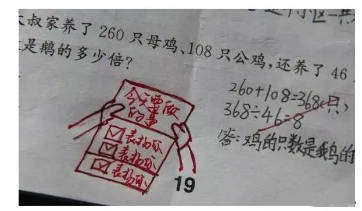 叔家养了 260 只母鸡、108 只公鸡，还养了 46
是鹅的多少倍？
260+108=368(只)
368÷46=8
答:鸡的只数是鹅的
今天要做
的事
☑表扬你
☑表扬你
☑表扬你
19